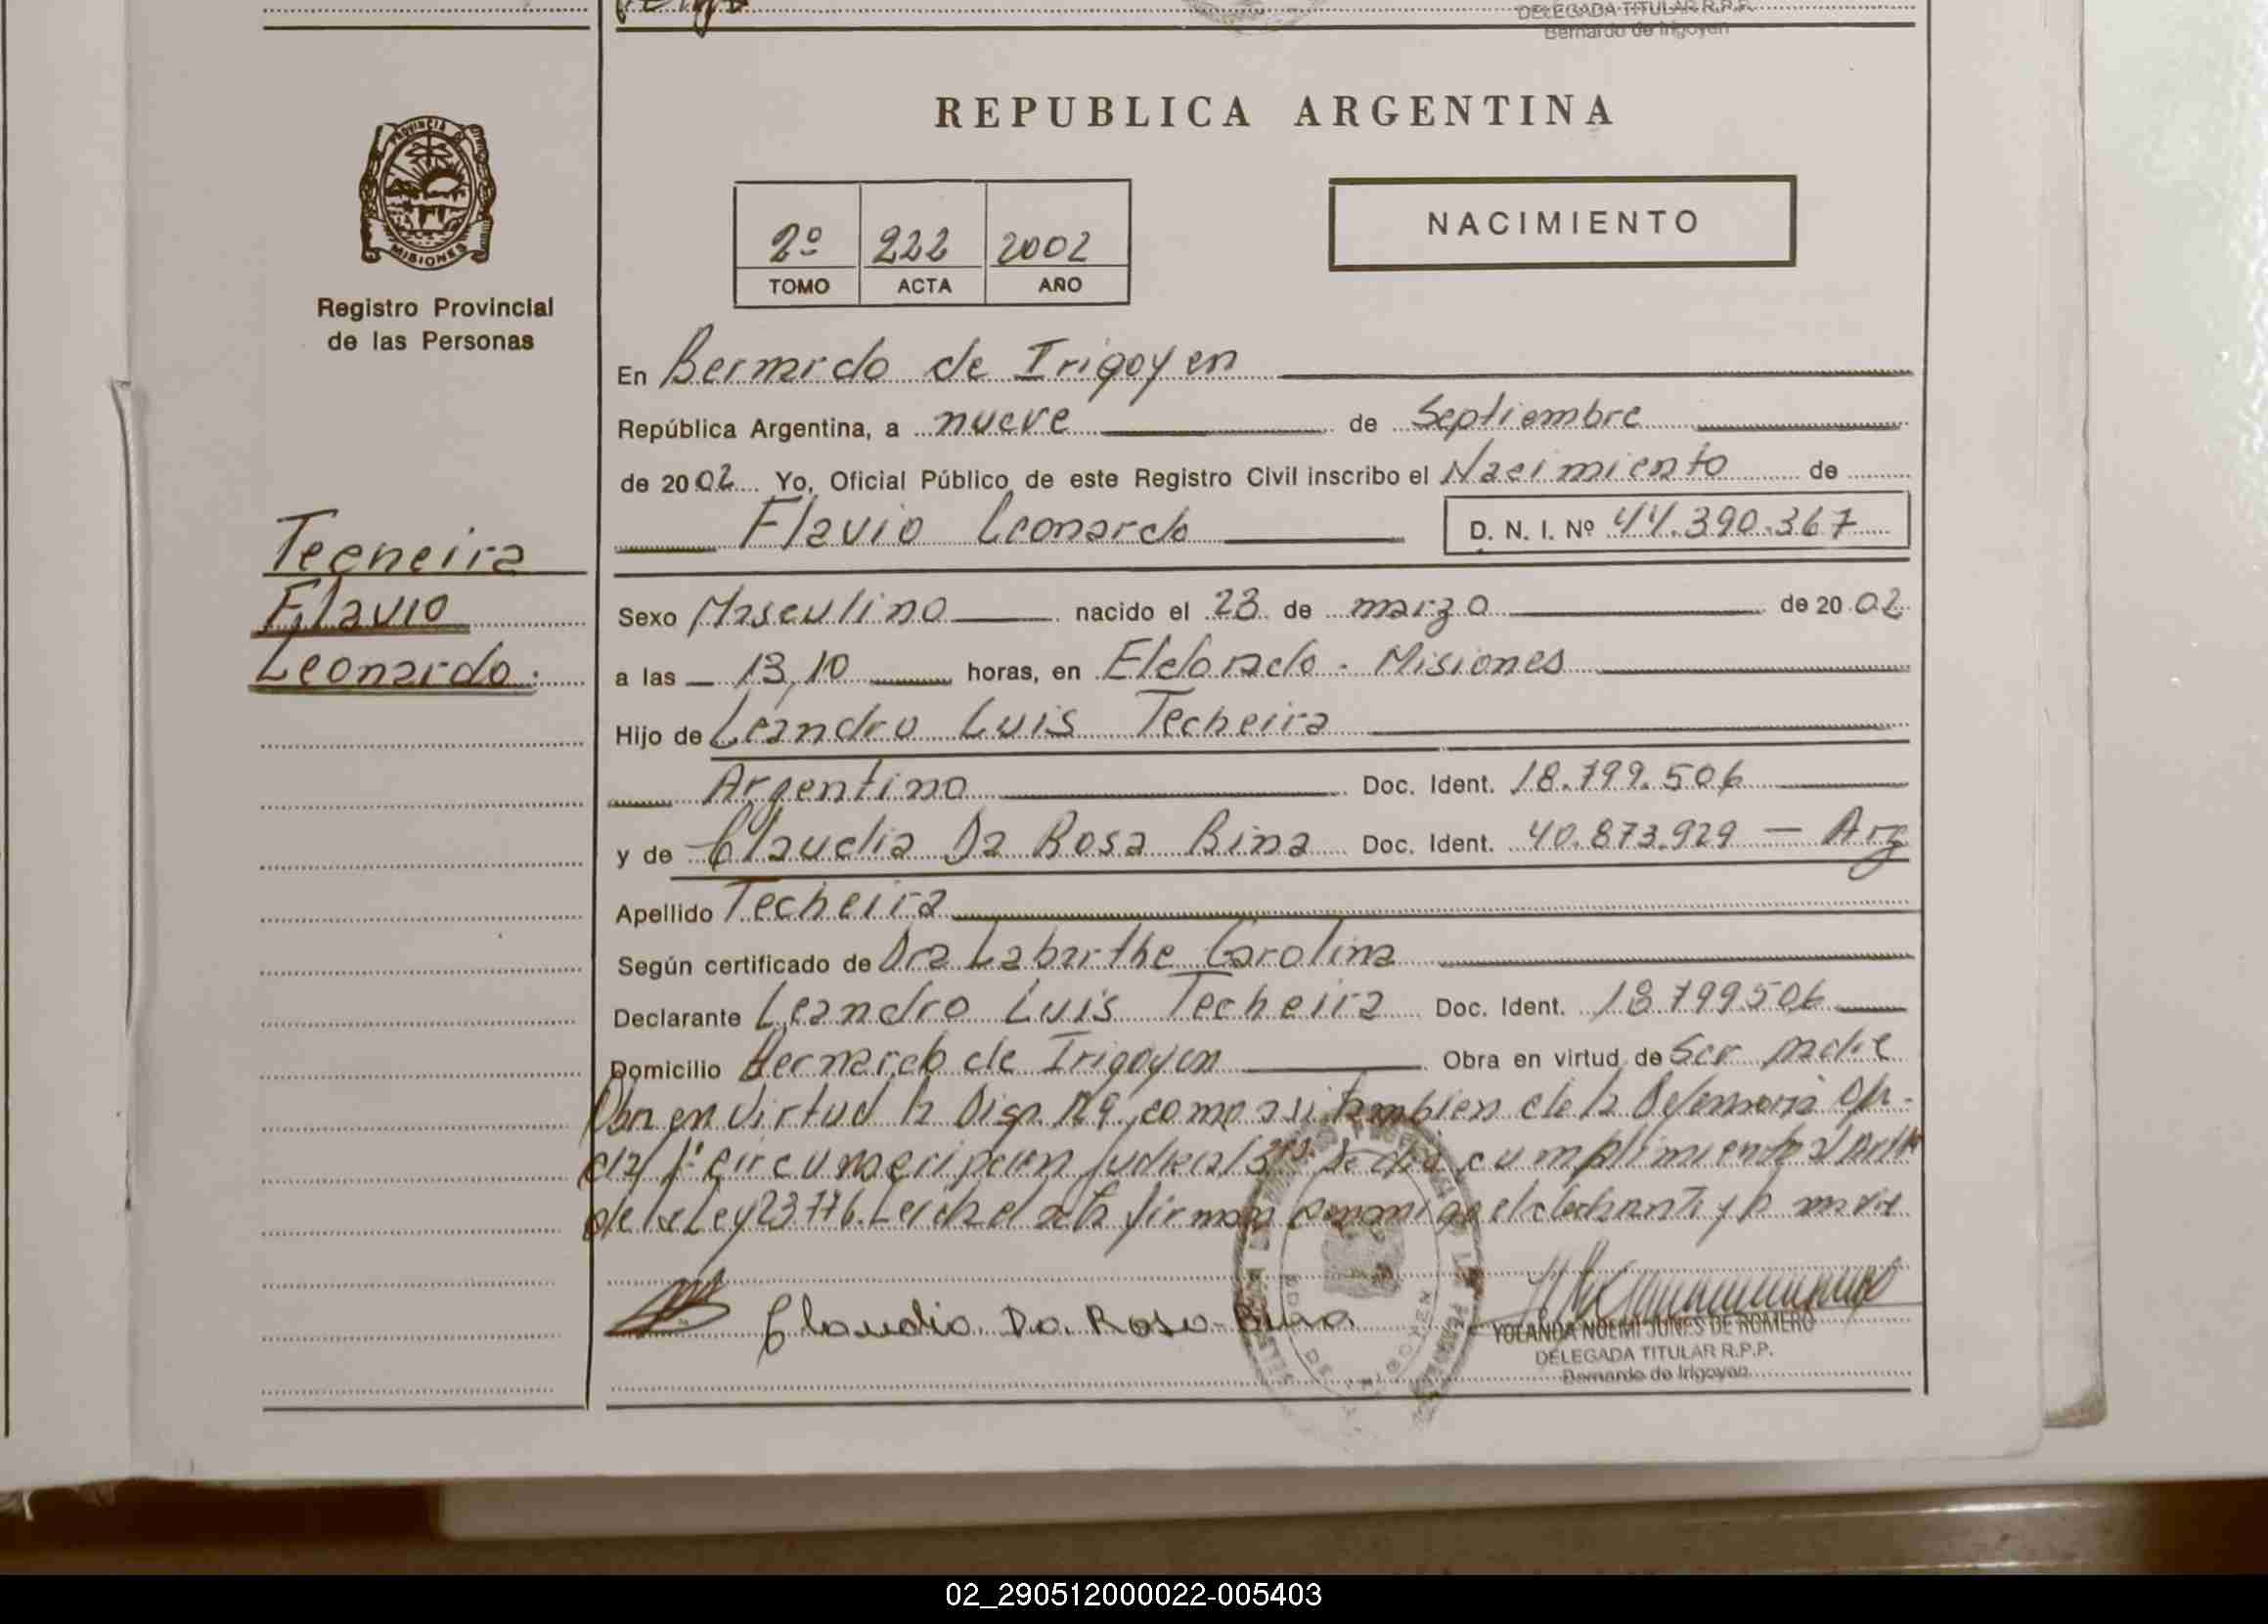 DELEGADA TITULAR R.P.P.
Bernardo de Irigoyen
PROVINCIA DE
MISIONES
Registro Provincial
de las Personas
REPUBLICA ARGENTINA
2º 222 2002
TOMO ACTA AÑO
NACIMIENTO
En Bernardo de Irigoyen
República Argentina, a nueve de Septiembre
de 2002 Yo, Oficial Público de este Registro Civil inscribo el Nacimiento de
Flavio Leonardo D. N. I. Nº 44.390.367
Techeira
Flavio
Leonardo.
Sexo Masculino nacido el 23 de marzo de 2002
a las 13,10 horas, en Eldorado - Misiones
Hijo de Leandro Luis Techeira
Argentino Doc. Ident. 18.799.506
y de Claudia Da Rosa Bina Doc. Ident. 40.873.929 - Arg
Apellido Techeira
Según certificado de Dra Labarthe Carolina
Declarante Leandro Luis Techeira Doc. Ident. 18.799.506
Domicilio Bernardo de Irigoyen Obra en virtud de Ser padre
Obra en virtud la Disp. como asi tambien de la Defensoria
circunscripcion Judicial cumplimiento al
de la Ley 23776. Leida el acta firman conmigo el declarante y la madre
Claudia Da Rosa Bina
YOLANDA NOEMI JUNES DE ROMERO
DELEGADA TITULAR R.P.P.
Bernardo de Irigoyen
02_290512000022-005403